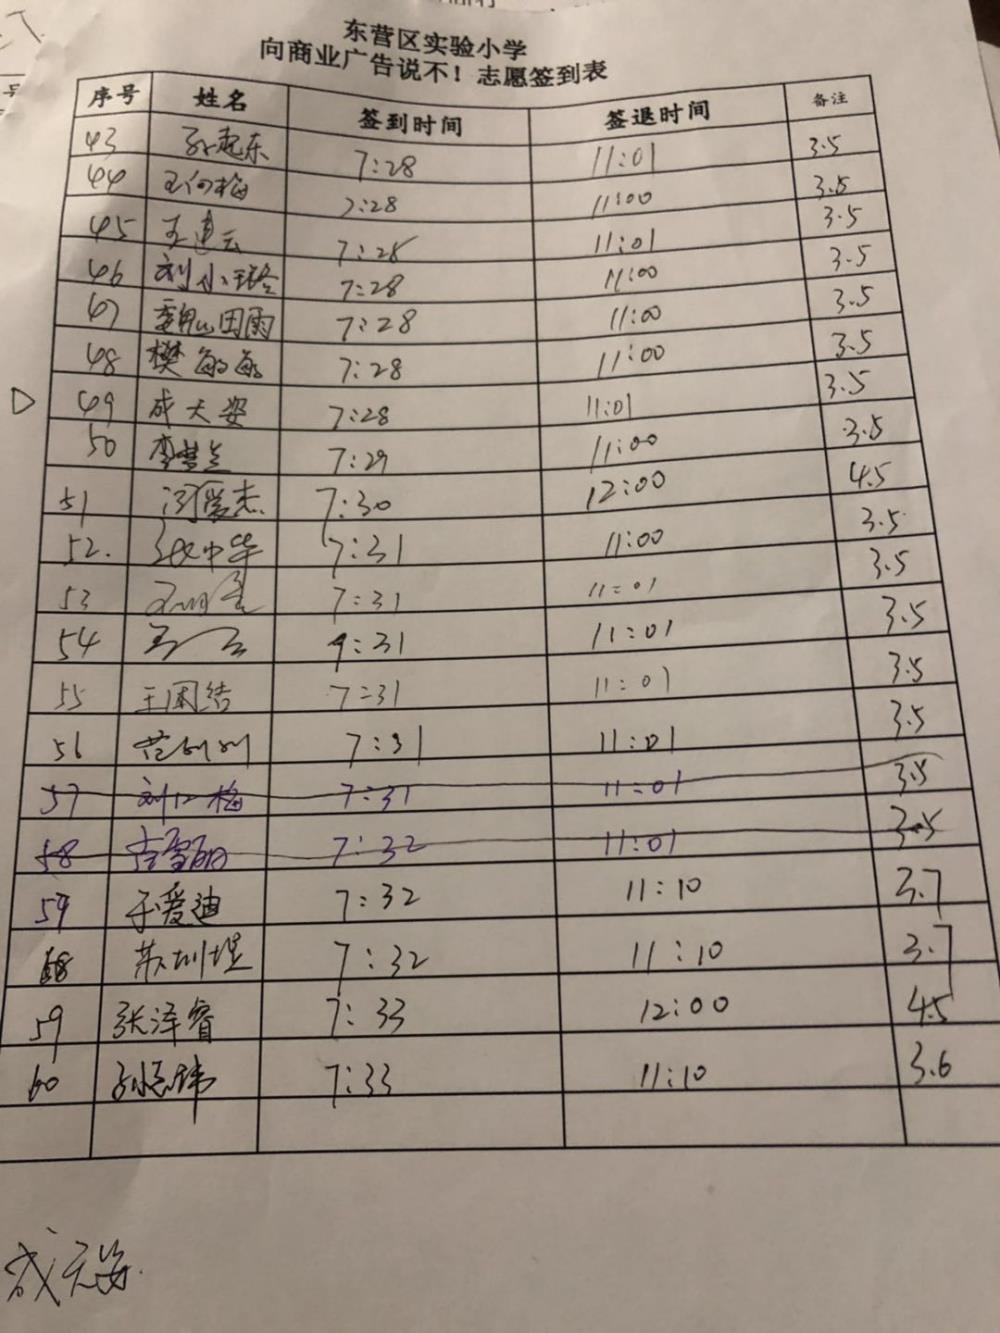 东营区实验小学
向商业广告说不！志愿签到表
序号 姓名 签到时间 签退时间 备注
43 孙起东 7:28 11:01 3.5
44 王何梅 7:28 11:00 3.5
45 7:28 11:01 3.5
46 刘小玲 7:28 11:00 3.5
47 田雨 7:28 11:00 3.5
48 樊敏敏 7:28 11:00 3.5
49 成天姿 7:28 11:01 3.5
50 李梦兰 7:29 11:00 3.5
51 闵爱杰 7:30 12:00 4.5
52. 张中华 7:31 11:00 3.5
53 7:31 11:01 3.5
54 9:31 11:01 3.5
55 王团结 7:31 11:01 3.5
56 7:31 11:01 3.5
57 刘江梅 7:31 11:01 3.5
58 7:32 11:01 3.5
59 于爱迪 7:32 11:10 3.7
58 7:32 11:10 3.7
59 张泽睿 7:33 12:00 4.5
60 7:33 11:10 3.6